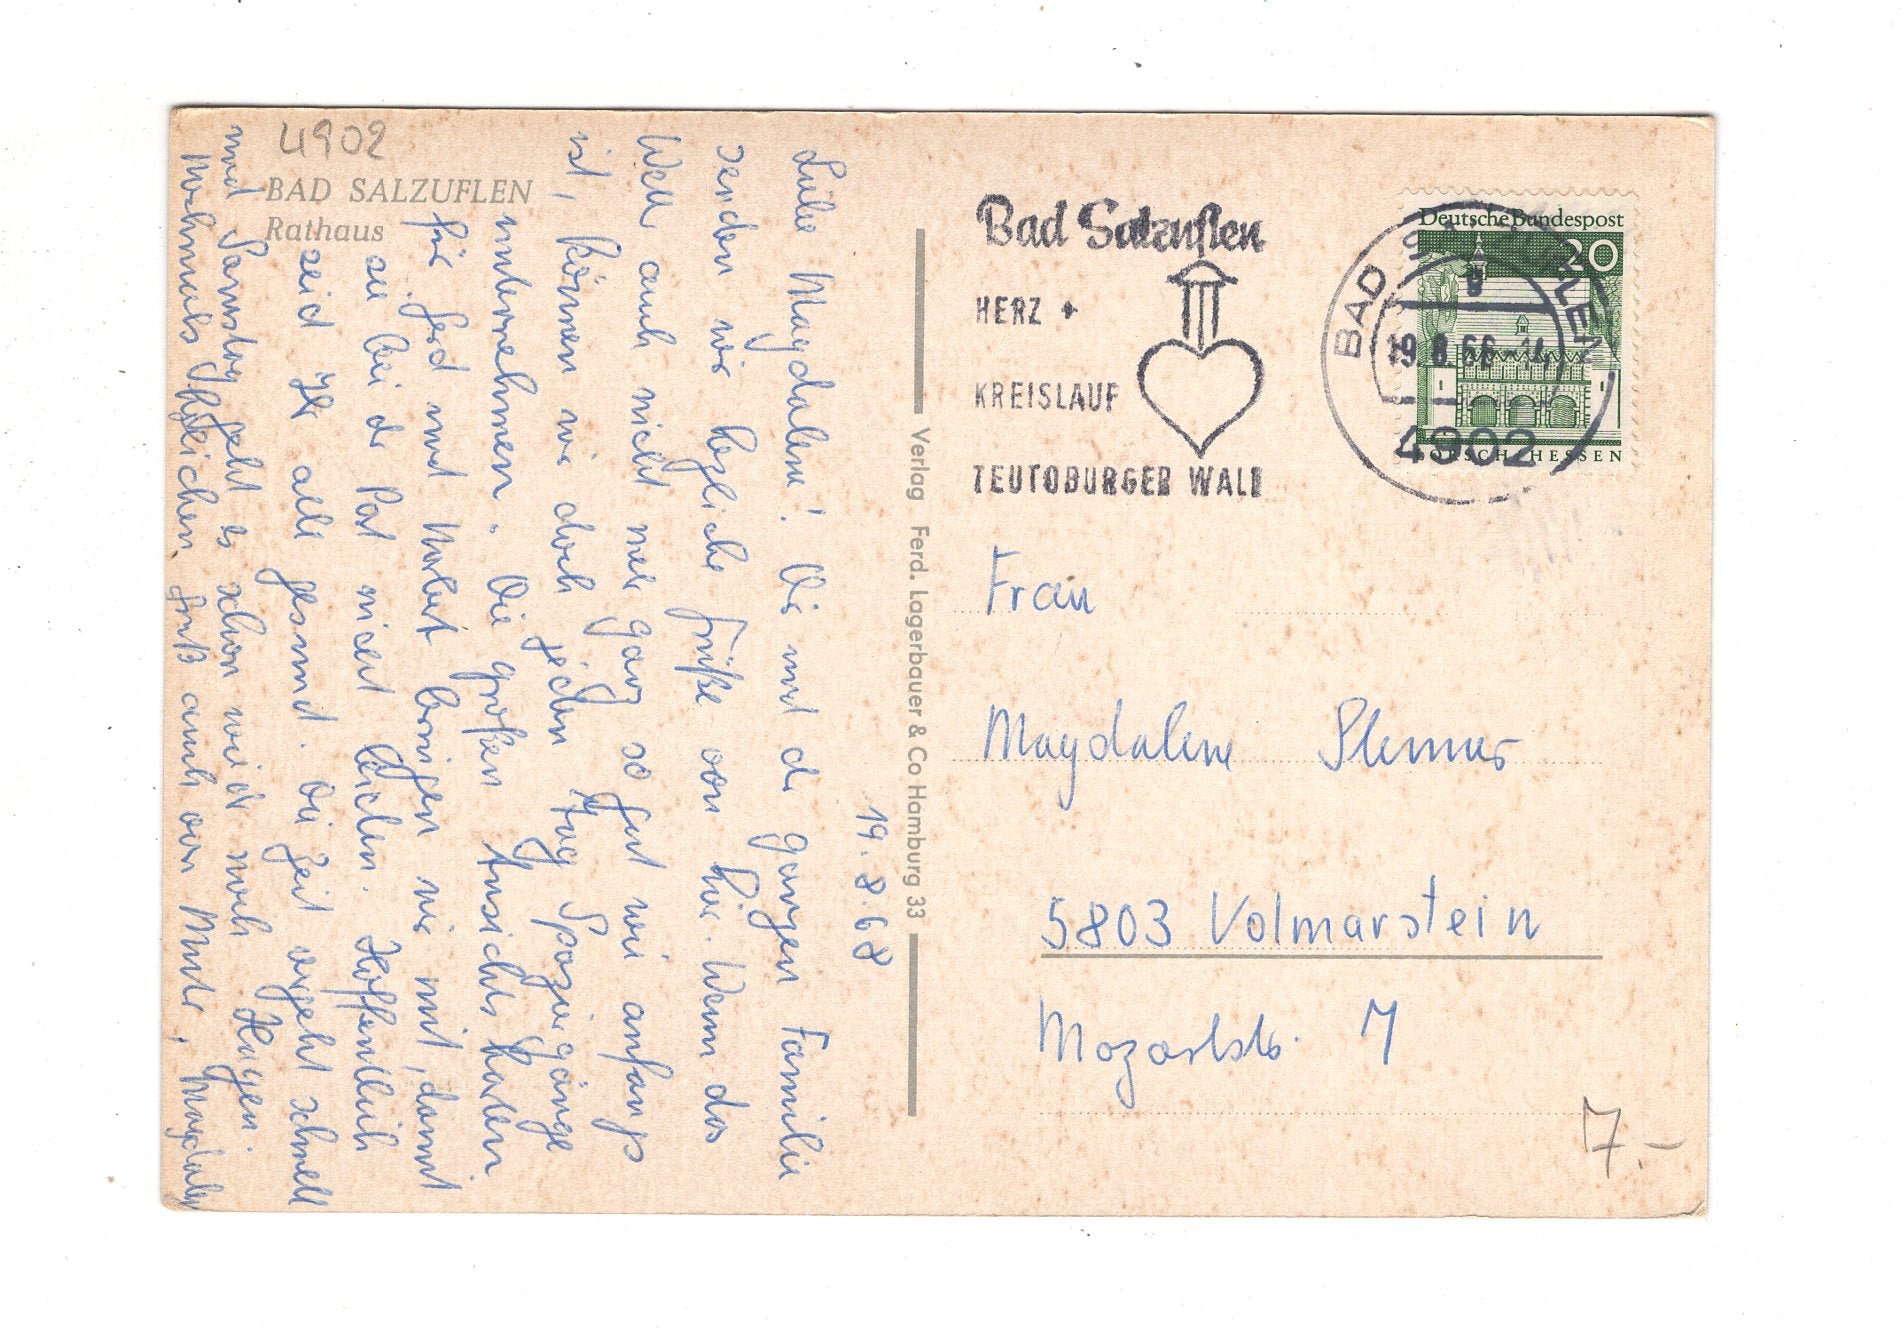 4902
BAD SALZUFLEN
Rathaus
19.8.68
Liebe Magdalene! Dir und der ganzen Familie
senden wir herzliche Grüße von hier. Wenn das
Wetter auch nicht mehr ganz so gut wie anfangs
ist, können wir doch jeden Tag Spaziergänge
unternehmen. Die großen Ansichtskarten
für Gerd und Norbert bringen wir mit, damit
sie bei der Post nicht leiden. Hoffentlich
seid ihr alle gesund. Die Zeit vergeht schnell
und Samstag geht es schon wieder nach Hagen.
Nochmals
gleichen Gruß auch von Mutter, Magdalene
Verlag Ferd. Lagerbauer & Co Hamburg 33
Bad Salzuflen
HERZ +
KREISLAUF
TEUTOBURGER WALD
Deutsche Bundespost
20
LORSCH/HESSEN
BAD SALZUFLEN
19.8.68-14
4902
Frau
Magdalene
5803 Volmarstein
Mozartstr. 7
7.-